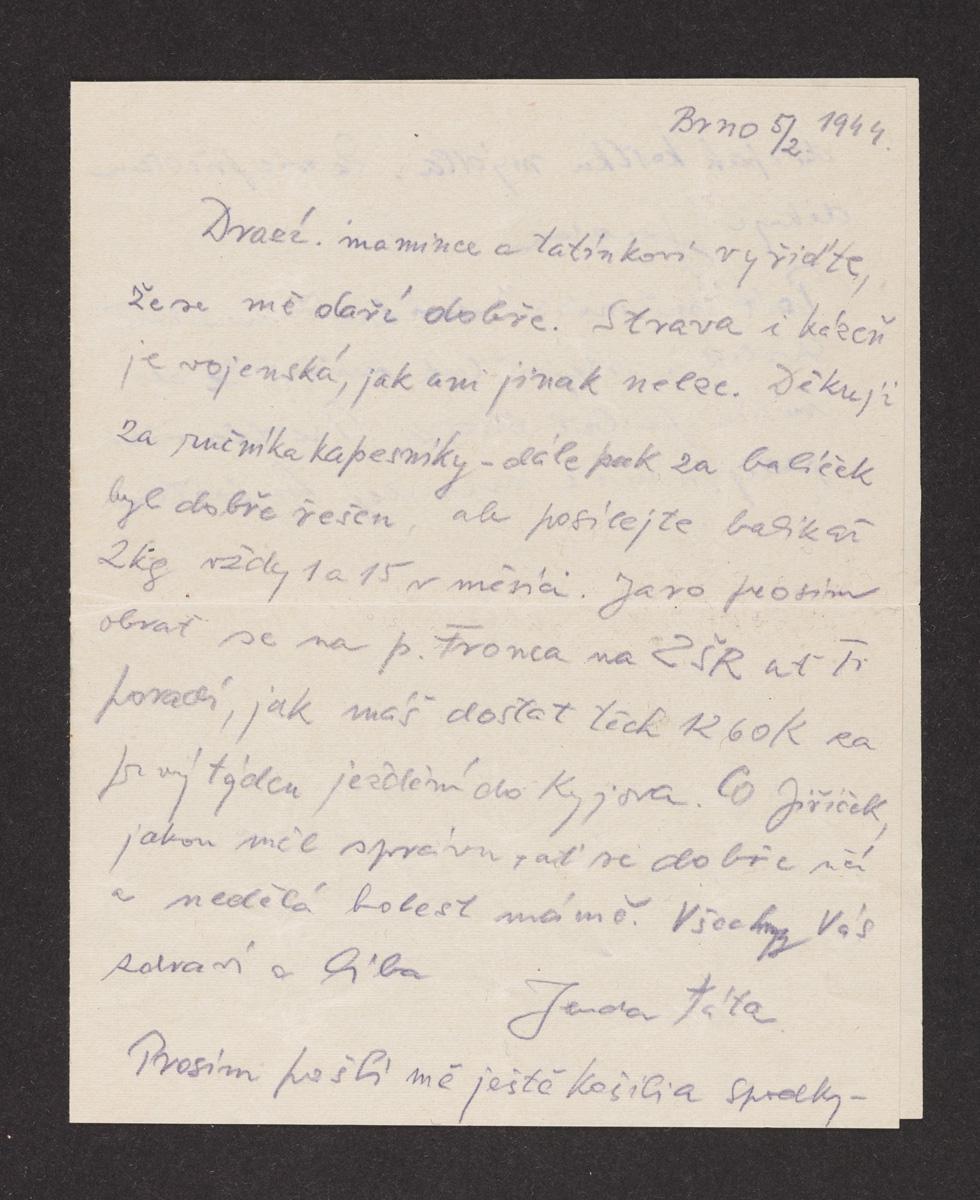 Brno 5/2 1944.
Drazí. mamince a tatínkovi vyřiďte,
že se mě daří dobře. Strava i kázeň
je vojenská, jak ani jinak nelze. Děkuji
za ručník a kapesníky - dále pak za balíček
byl dobře řešen, ale posílejte balík až
2kg vždy 1 a 15 v měsíci. Jaro prosím
obrať se na p. Fronca na ZŠR ať Ti
poradí, jak máš dostat těch 1260K za
prvý týden ježdění do Kyjova. Co Jiříček,
jakou měl správu, ať se dobře učí
a nedělá bolest mámě. Všechny Vás
zdraví a líbá
Jenda táta
Prosím pošli mě ještě košili a spodky-